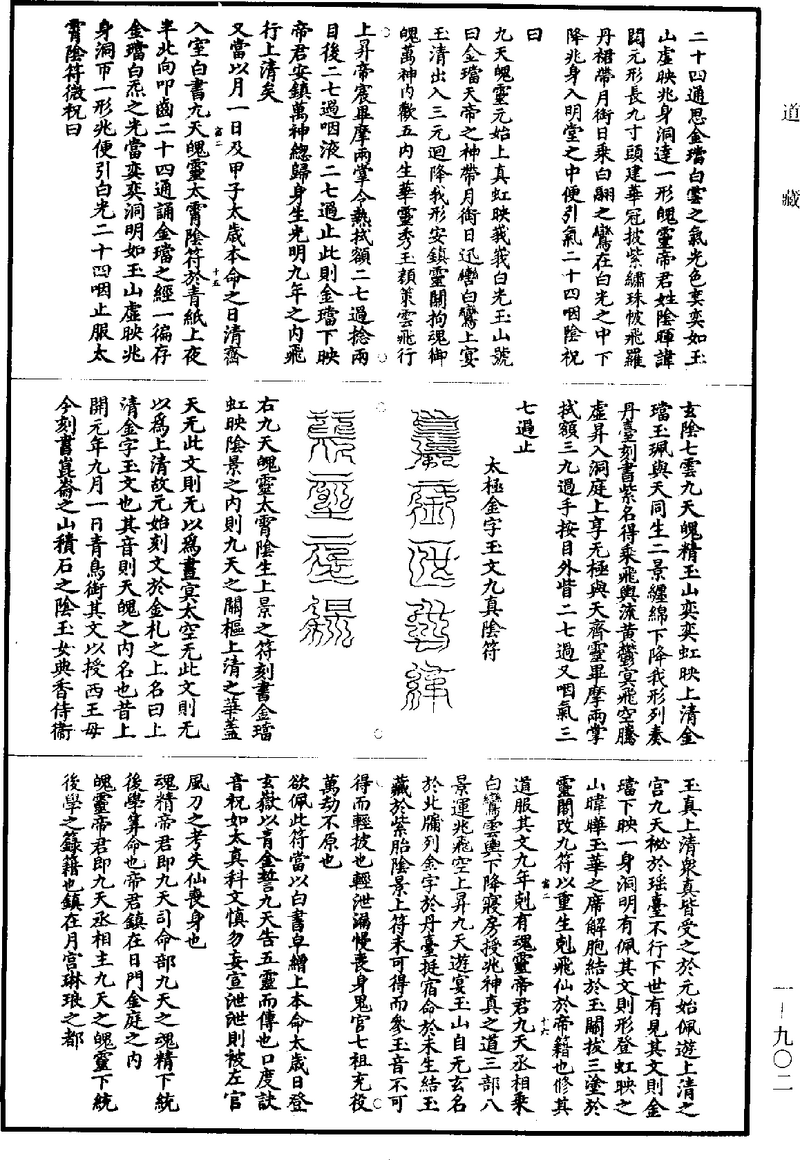 道藏
二十四通思金璫白雲之氣光色奕奕如玉
山虛映兆身洞達一形魄靈帝君姓陰暉諱
閎元形長九寸頭建華冠披紫繡珠帔飛羅
丹裙帶月銜日乘白翮之鸞在白光之中下
降兆身入明堂之中便引氣二十四咽陰祝
曰
九天魄靈元始上真虹映莪莪白光玉山號
曰金璫天帝之神帶月銜日迅轡白鸞上宴
玉清出入三元迴降我形安鎮靈關拘魂御
魄萬神內歡五內生華靈秀玉顏策雲飛行
上昇帝宸畢摩兩掌令熱拭額二七過捻兩
目後二七過咽液二七過止此則金璫下映
帝君安鎮萬神總歸身生光明九年之內飛
行上清矣
又當以月一日及甲子太歲本命之日清齋
入室白書九天魄靈太霄陰符於青紙上夜
半北向叩齒二十四通誦金璫之經一徧存
金璫白炁之光當奕奕洞明如玉山虛映兆
身洞帀一形兆便引白光二十四咽止服太
霄陰符微祝曰
玄陰七雲九天魄精玉山奕奕虹映上清金
璫玉珮與天同生二景纏綿下降我形列奏
丹臺刻書紫名得乘飛輿流黃鬱冥飛空騰
虛昇入洞庭上享无極與天齊靈畢摩兩掌
拭額三九過手按目外眥二七過又咽氣三
七過止
太極金字玉文九真陰符
右九天魄靈太霄陰生上景之符刻書金璫
虹映陰景之內則九天之關樞上清之華蓋
天无此文則无以爲晝冥太空无此文則无
以爲上清故元始刻文於金札之上名曰上
清金字玉文也其音則天魄之內名也昔上
開元年九月一日青鳥銜其文以授西王母
今刻書崑崙之山積石之陰玉女典香侍衛
玉真上清衆真皆受之於元始佩遊上清之
宮九天袐於瑶臺不行下世有見其文則金
璫下映一身洞明有佩其文則形登虹映之
山暐曄玉華之席解胞結於玉關拔三塗於
靈關改九符以重生剋飛仙於帝籍也修其
道服其文九年剋有魂靈帝君九天丞相乘
白鸞雲輿下降寢房授兆神真之道三部八
景運兆飛空上昇九天遊宴玉山自无玄名
於北牖列金字於丹臺挺宿命於未生結玉
藏於紫胎陰景上符未可得而參玉音不可
得而輕披也輕泄漏慢喪身鬼官七祖充役
萬劫不原也
欲佩此符當以白書皁繒上本命太歲日登
玄嶽以青金誓九天告五靈而傳也口度訣
音祝如太真科文慎勿妄宣泄泄則被左官
風刀之考失仙喪身也
魂精帝君即九天司命部九天之魂精下統
後學筭命也帝君鎮在日門金庭之內
魄靈帝君即九天丞相主九天之魄靈下統
後學之籙籍也鎮在月宮琳琅之都
一—九〇二